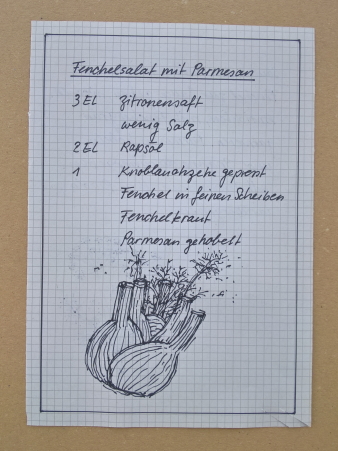 Fenchelsalat mit Parmesan
3 EL Zitronensaft
wenig Salz
2 EL Rapsöl
1 Knoblauchzehe gepresst
Fenchel in feinen Scheiben
Fenchelkraut
Parmesan gehobelt